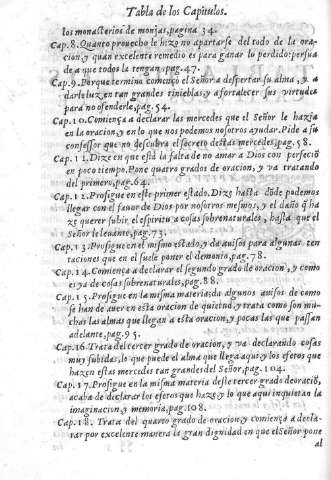 Tabla de los Capitulos.
los monasterios de monjas, pagina 34.
Cap. 8. Quanto prouecho le hizo no apartarse del todo de la ora-
cion, y quan excelente remedio es para ganar lo perdido: persua
de a que todos la tengan, pag. 47.
Cap. 9. Porque termino començò el Señor a despertar su alma, y a
darle luz en tan grandes tinieblas, y a fortalecer sus virtudes
para no ofenderle, pag. 54.
Cap. 10. Comiença a declarar las mercedes que el Señor le hazia
en la oracion, y en lo que nos podemos nosotros ayudar. Pide a su
confessor que no descubra el secreto destas mercedes, pag. 58.
Cap. 11. Dize en que està la falta de no amar a Dios con perfeciō
en poco tiempo. Pone quatro grados de oracion, y va tratando
del primero, pag. 64.
Cap. 12. Prosigue en este primer estado. Dize hasta dōde podemos
llegar con el fauor de Dios por nosotros mesmos, y el daño q̃ ha
ze querer subir el espiritu a cosas sobrenaturales, hasta que el
Señor le leuante, pag. 73.
Cap. 13. Prosigue en el mismo estado, y da auisos para algunas ten
taciones que en el suele poner el demonio, pag. 78.
Cap. 14. Comiença a declarar el segundo grado de oracion, y como
es ya de cosas sobrenaturales, pag. 88.
Cap. 15. Prosigue en la misma materia, da algunos auisos de como
se han de auer en esta oracion de quietud, y trata como son mu-
chas las almas que llegan a esta oracion, y pocas las que passan
adelante, pag. 95.
Cap. 16. Trata del tercer grado de oracion, y va declarando cosas
muy subidas, lo que puede el alma que llega aqui, y los efetos que
hazen estas mercedes tan grandes del Señor, pag. 104.
Cap. 17. Prosigue en la misma materia deste tercer grado de oraciō,
acaba de declarar los efetos que haze, y lo que aqui inquietan la
imaginacion, y memoria, pag. 108.
Cap. 18. Trata del quarto grado de oracion, y comiença a decla-
rar por excelente manera la gran dignidad en que el Señor pone
al